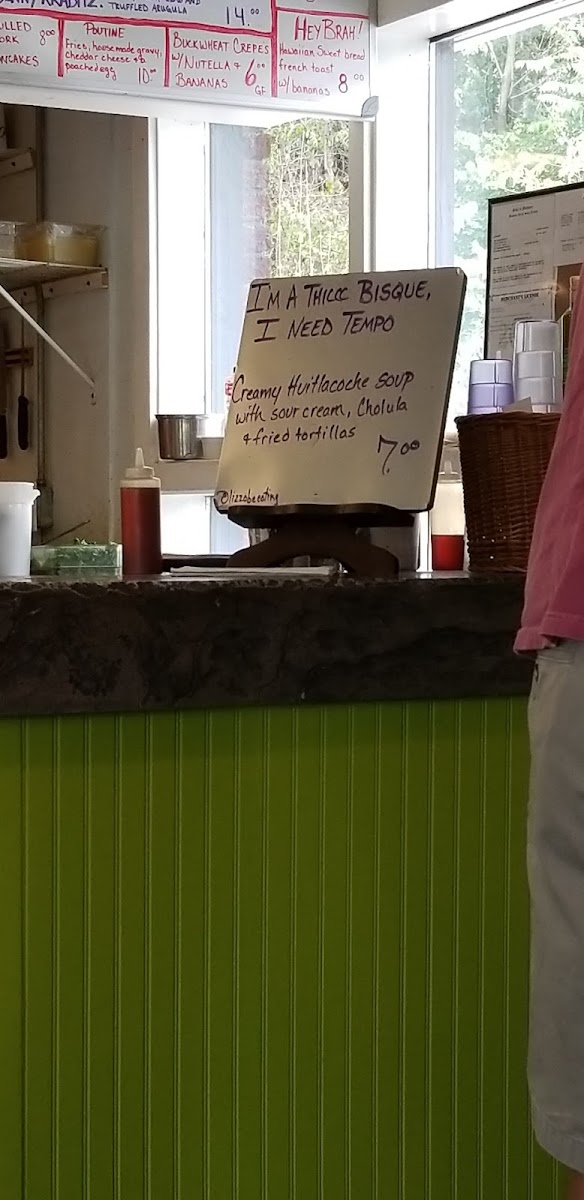 TRUFFLED ARUGULA 14.00
ULLED
ORK 8.00
NCAKES
POUTINE
Fries, housemade gravy,
cheddar cheese &
poached egg 10.00
BUCKWHEAT CREPES
W/NUTELLA &
BANANAS 6.00
GF
HEY BRAH!
Hawaiian Sweet bread
french toast
w/bananas 8.00
I'M A THICC BISQUE,
I NEED TEMPO
Creamy Huitlacoche soup
with sour cream, Cholula
& fried tortillas
7.00
@lizzobeeating